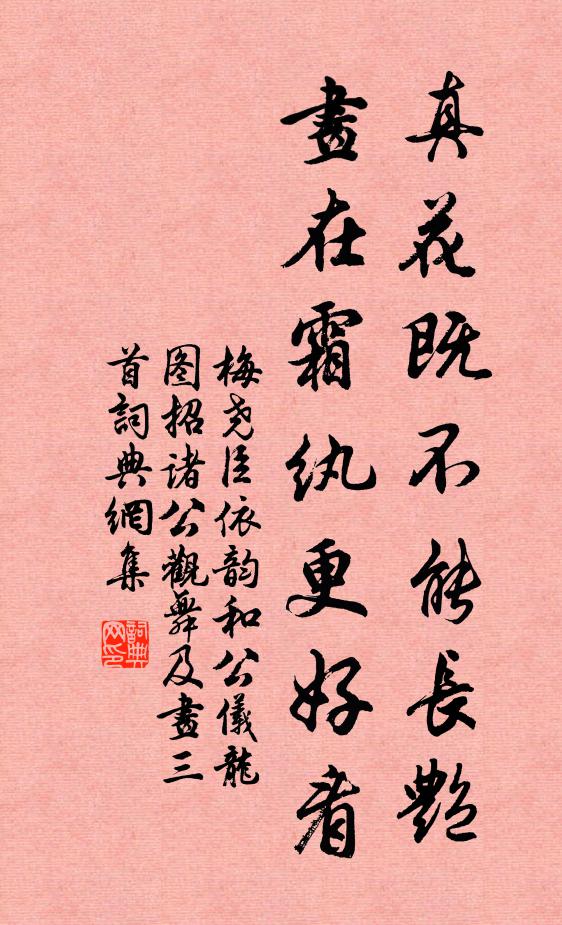 真花既不能長艷
畫在霜紈更好看
梅尧臣依韵和公儀龍
图招诸公觀舞及畫三
首詞典網集
詞典
网印